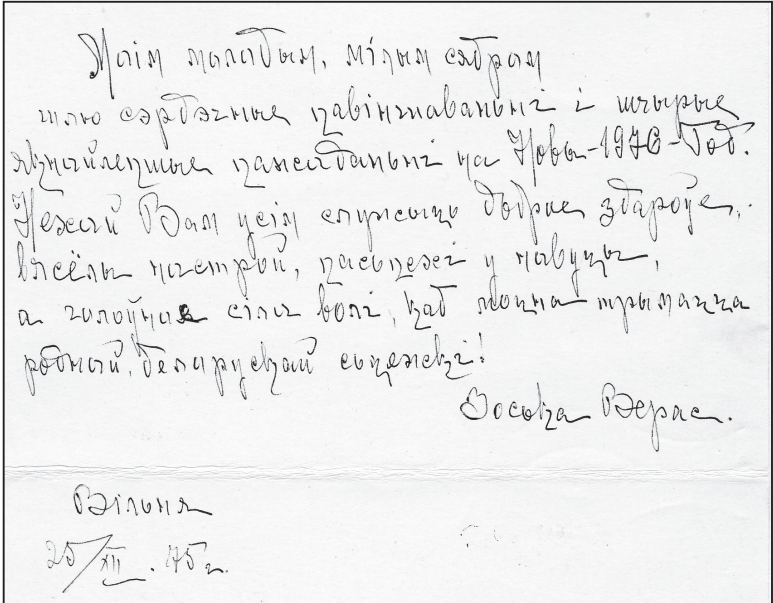 Маім маладым, мілым сябрам
шлю сэрдэчныя павіншаваньні і шчырыя
якнайлепшыя пажаданьні на Новы-1976-Год.
Няхай Вам усім служыць добрае здароўе,
вясёлы настрой, пасьпехі у навуцы,
а галоўнае сіла волі, каб моцна трымацца
роднай, беларускай сьцежкі!
Зоська Верас.
Вільня
25/XII. 75 г.